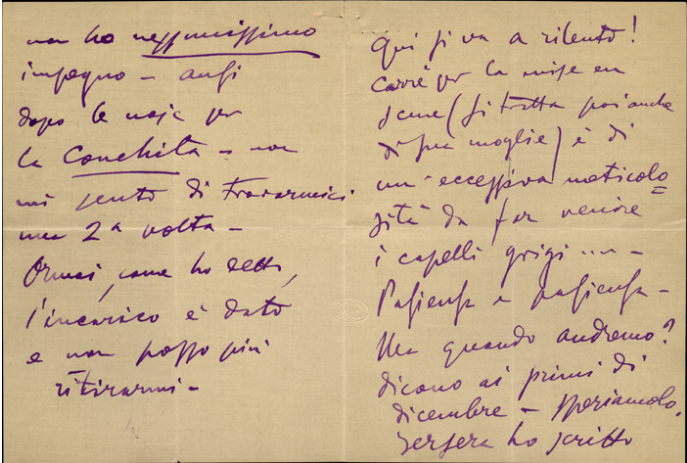 non ho nessunissimo
impegno - anzi
dopo le noje per
la Conchita - non
mi sento di trovarmici
una 2ª volta -
Ormai, come ho detto,
l'incarico è dato
e non posso più
ritirarmi -
Qui si va a rilento!
Carré per la mise en
scene (si tratta poi anche
di sua moglie) è di
un'eccessiva meticolo=
sità da far venire
i capelli grigi... -
Pasienza e pasienza -
Ma quando andremo?
dicono ai primi di
dicembre - speriamolo.
Jersera ho scritto